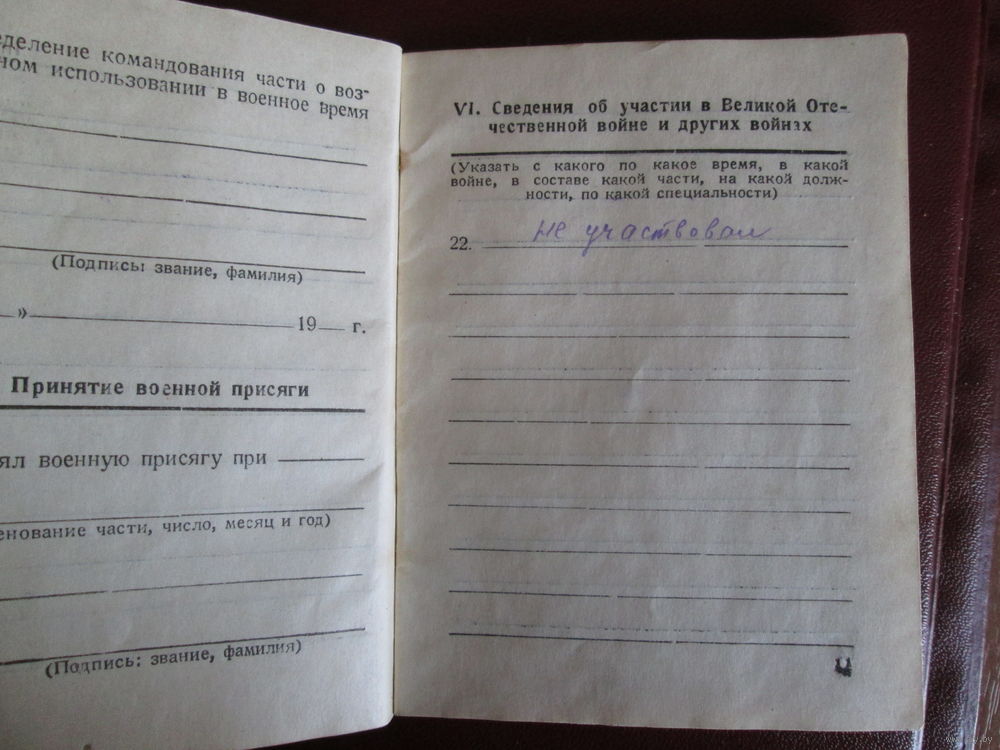 еделение командования части о воз-
ном использовании в военное время
(Подпись: звание, фамилия)
» 19 г.
Принятие военной присяги
ял военную присягу при
енование части, число, месяц и год)
(Подпись: звание, фамилия)
VI. Сведения об участии в Великой Оте-
чественной войне и других войнах
(Указать с какого по какое время, в какой
войне, в составе какой части, на какой долж-
ности, по какой специальности)
22. не участвовал